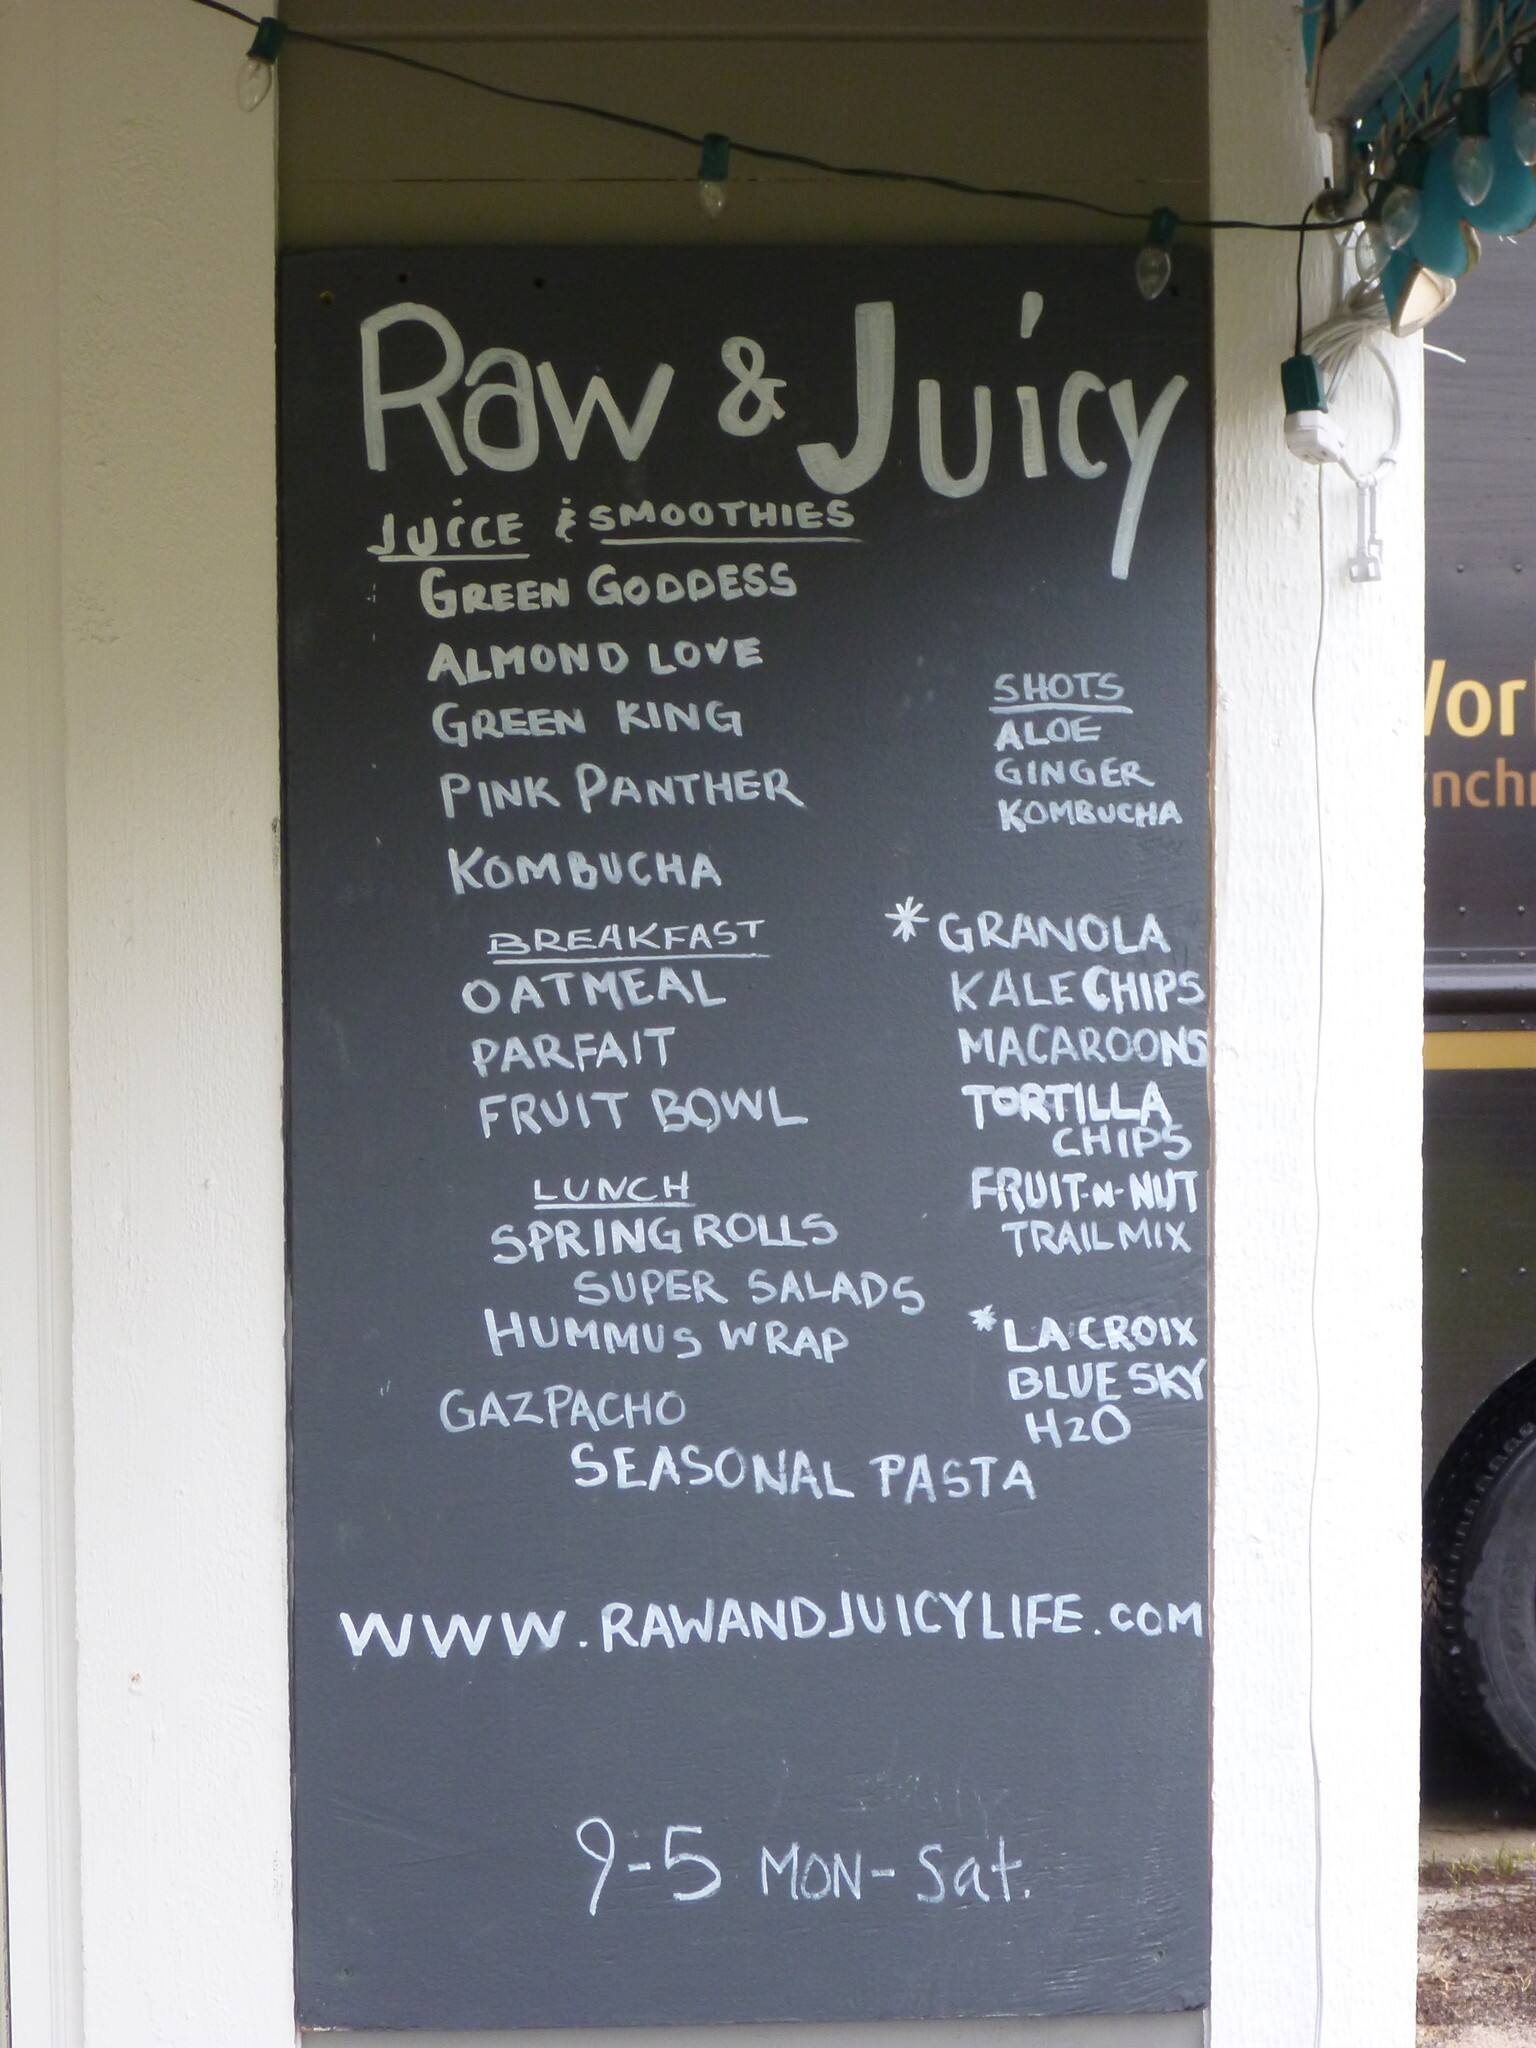 Raw & Juicy
JUICE & SMOOTHIES
GREEN GODDESS
ALMOND LOVE
GREEN KING
PINK PANTHER
KOMBUCHA
SHOTS
ALOE
GINGER
KOMBUCHA
BREAKFAST
OATMEAL
PARFAIT
FRUIT BOWL
LUNCH
SPRING ROLLS
SUPER SALADS
HUMMUS WRAP
GAZPACHO
SEASONAL PASTA
*GRANOLA
KALE CHIPS
MACAROONS
TORTILLA
CHIPS
FRUIT-N-NUT
TRAIL MIX
*LA CROIX
BLUE SKY
H2O
WWW.RAWANDJUICYLIFE.COM
9-5 MON-Sat.